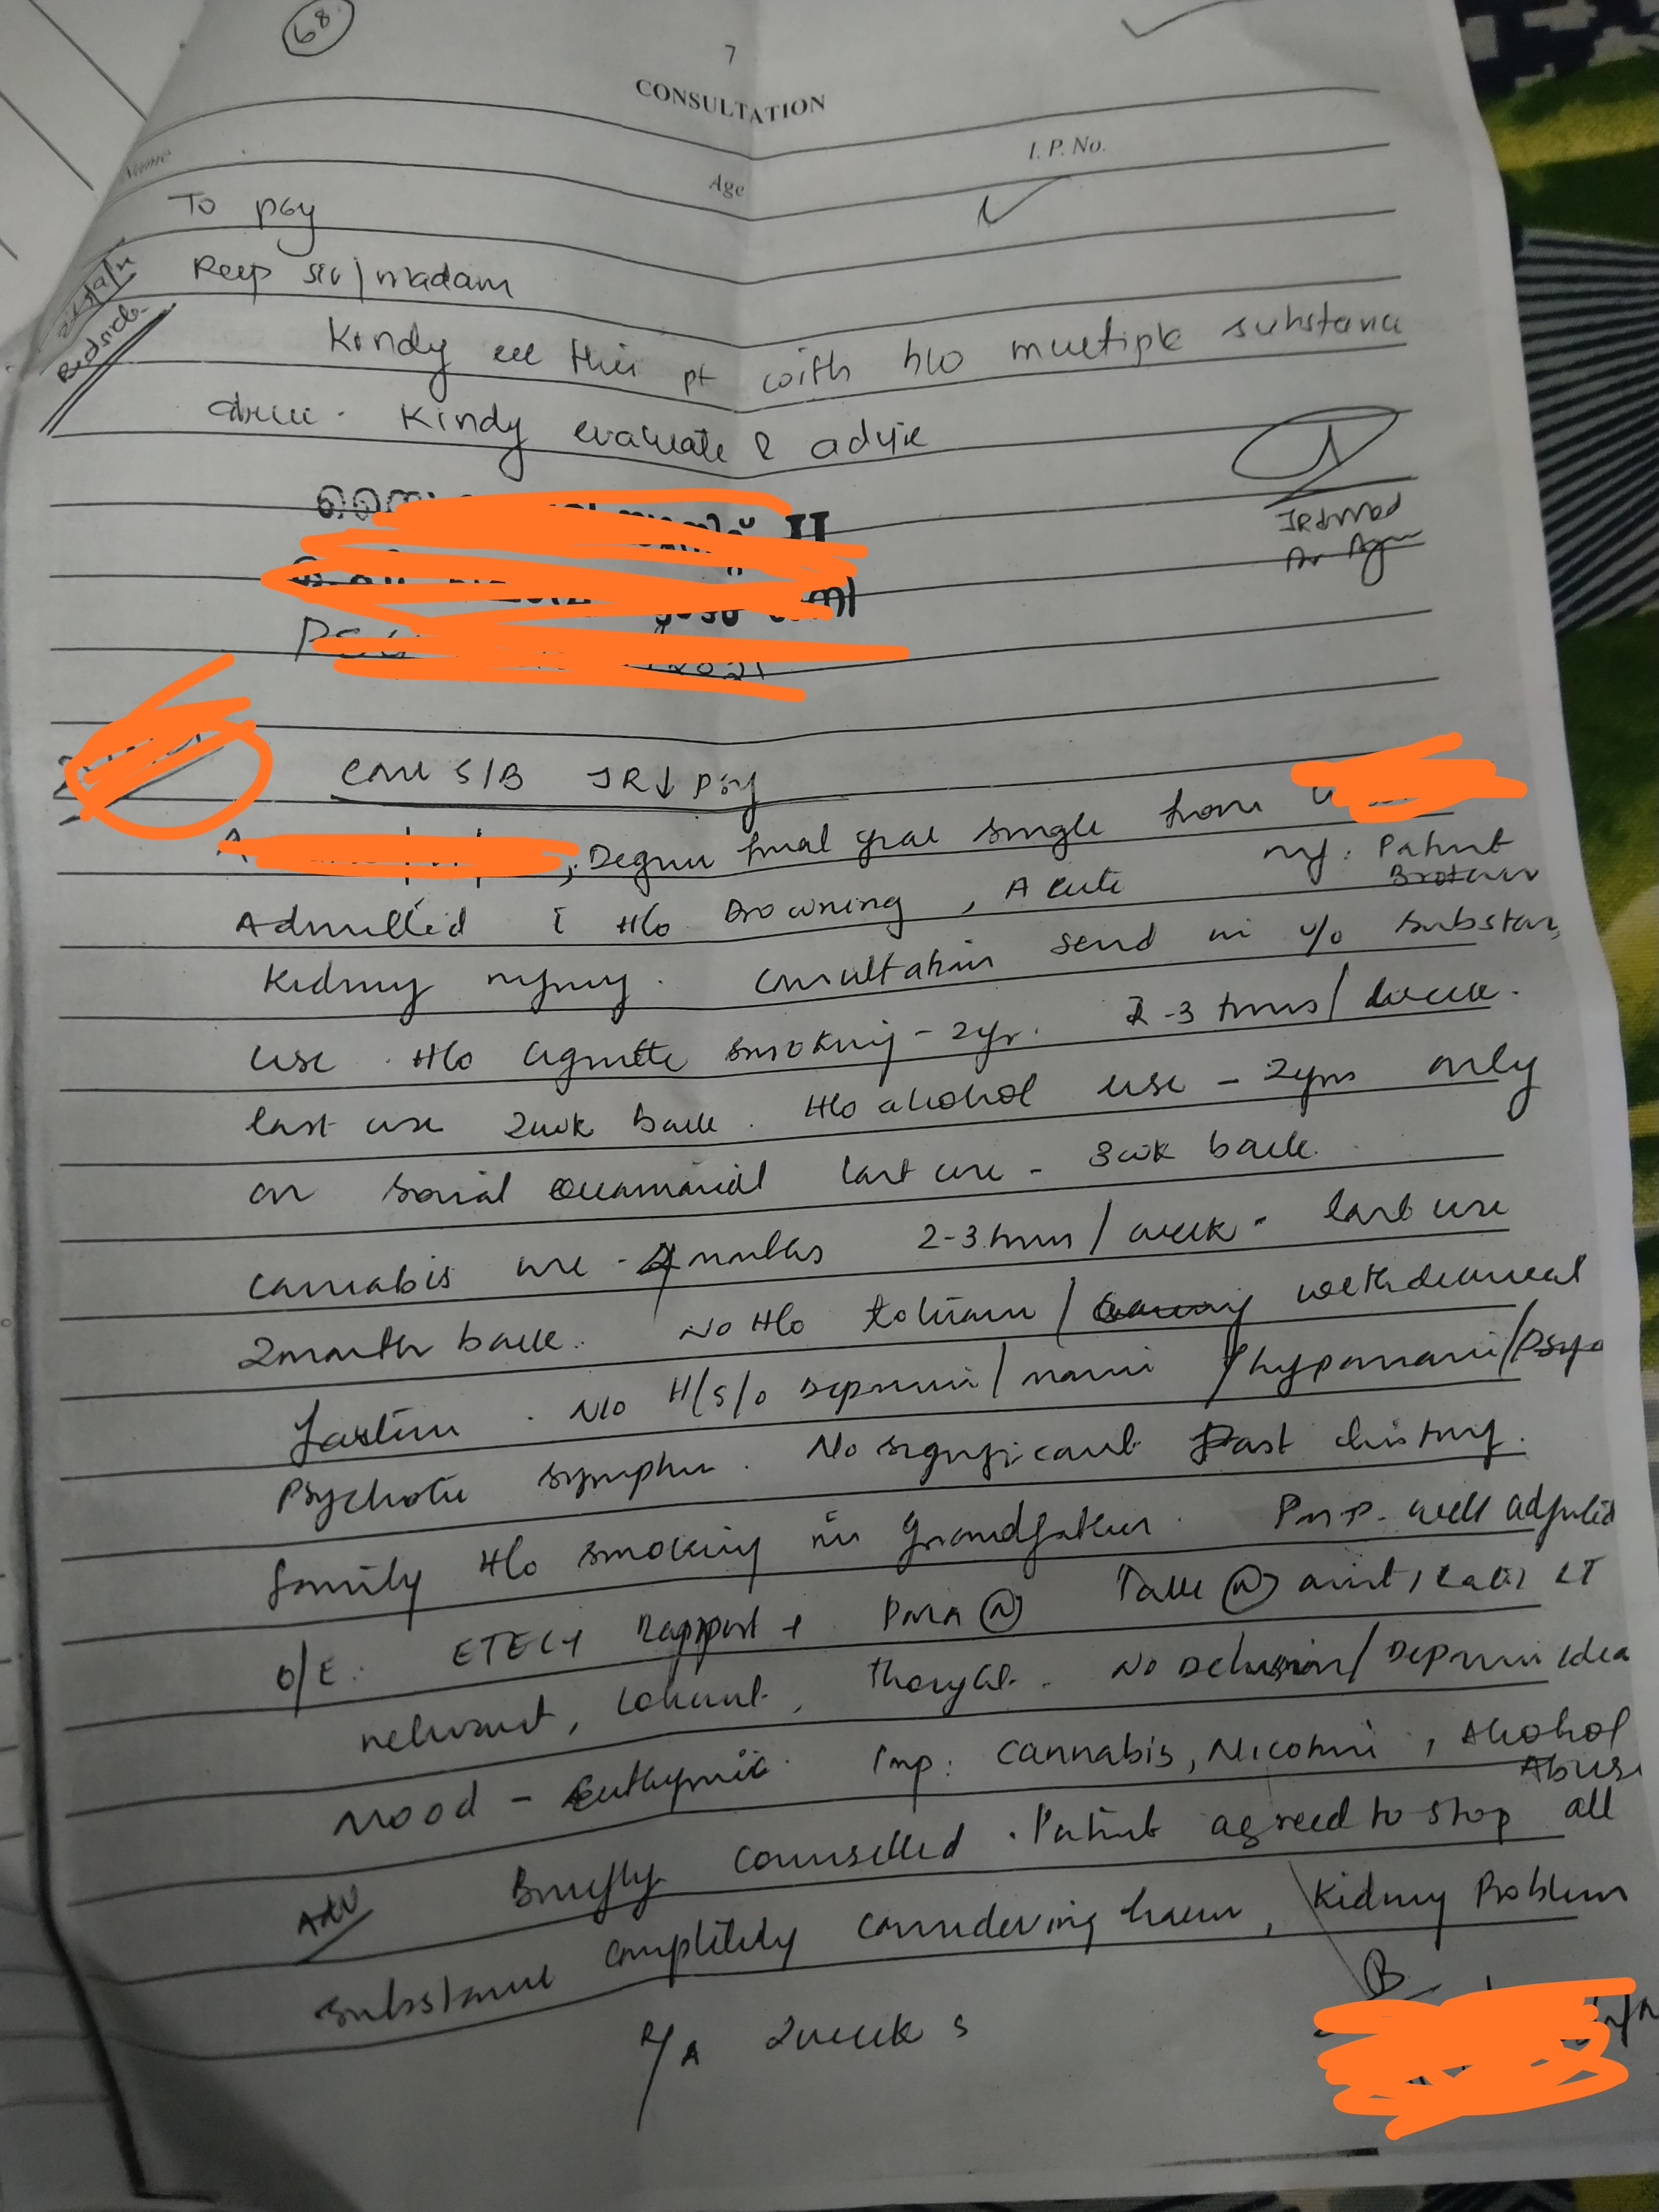 68
7
CONSULTATION
Name Age I. P. No.
To psy
Resp sir/madam
Bedside
Kindy see this pt with h/o multiple substance
abuse. Kindy evaluate & advise
JRIMed
II
Case S/B JR↓ Psy
Degree final year single from
Admitted c̄ H/o Drowning, Acute inf: Patient
Brother
Kidney injury. Consultation send in v/o substan
use. H/o cigarette smoking - 2yr. 2-3 times/week.
last use 2wk back. H/o alcohol use - 2yrs only
on social occasional last use - 3wk back.
cannabis use - 4 months 2-3 times/week. last use
2month back. No H/o tolerance / withdrawal
N/o H/s/o Depression/mania/hypomania/Psyo
Psychotic symptom. No significant Past history.
family H/o smoking in Grandfather. PMP- well adjusted
O/E: ETEC+ Rapport + PMA (N) Talk (N) RT
relevant, coherent, thought - No Delusion/Depressive idea
Mood - Euthymic. Imp: Cannabis, Nicotine, Alcohol
Abuse
Adv Briefly counselled. Patient agreed to stop all
substance completely considering harm, Kidney Problem
R/A 2weeks